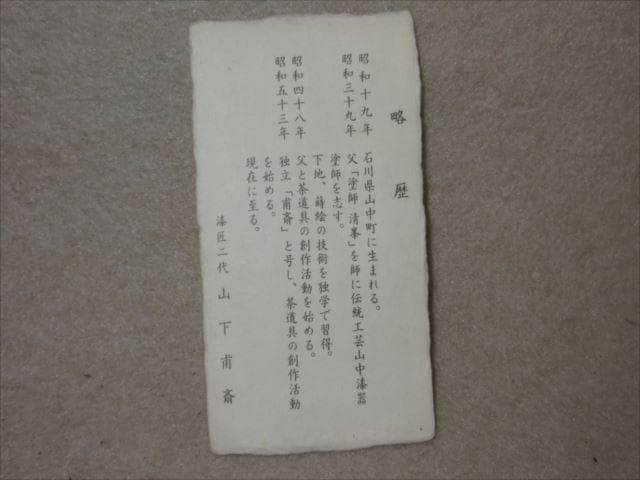 略歴
昭和十九年 石川県山中町に生まれる。
昭和三十九年 父「塗師 清峯」を師に伝統工芸山中漆器
塗師を志す。
下地、蒔絵の技術を独学で習得。
昭和四十八年 父と茶道具の創作活動を始める。
昭和五十三年 独立「甫斎」と号し、茶道具の創作活動
を始める。
現在に至る。
漆匠二代 山下甫斎